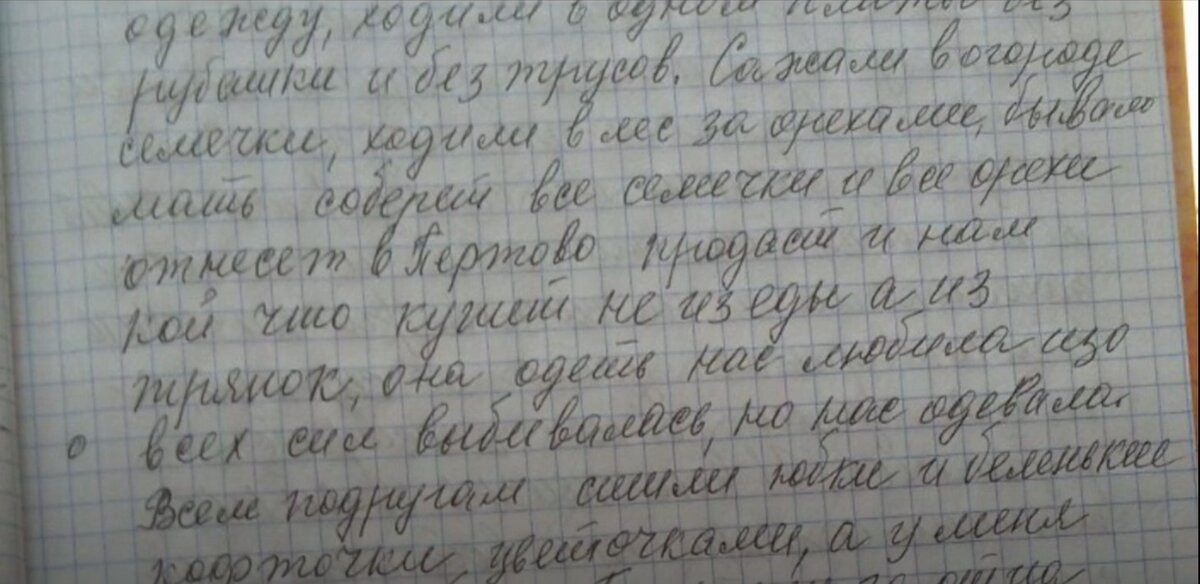 одежду, ходили в одном платье без
рубашки и без трусов. Сажали в огороде
семечки, ходили в лес за орехами, бывало
мать соберет все семечки и все орехи
отнесет в Пертово продаст и нам
кой что купит не из еды а из
тряпок, она одеть нас любила изо
всех сил выбивалась, но нас одевала.
Всем подругам сшили юбки и беленькие
кофточки, цветочками, а у меня